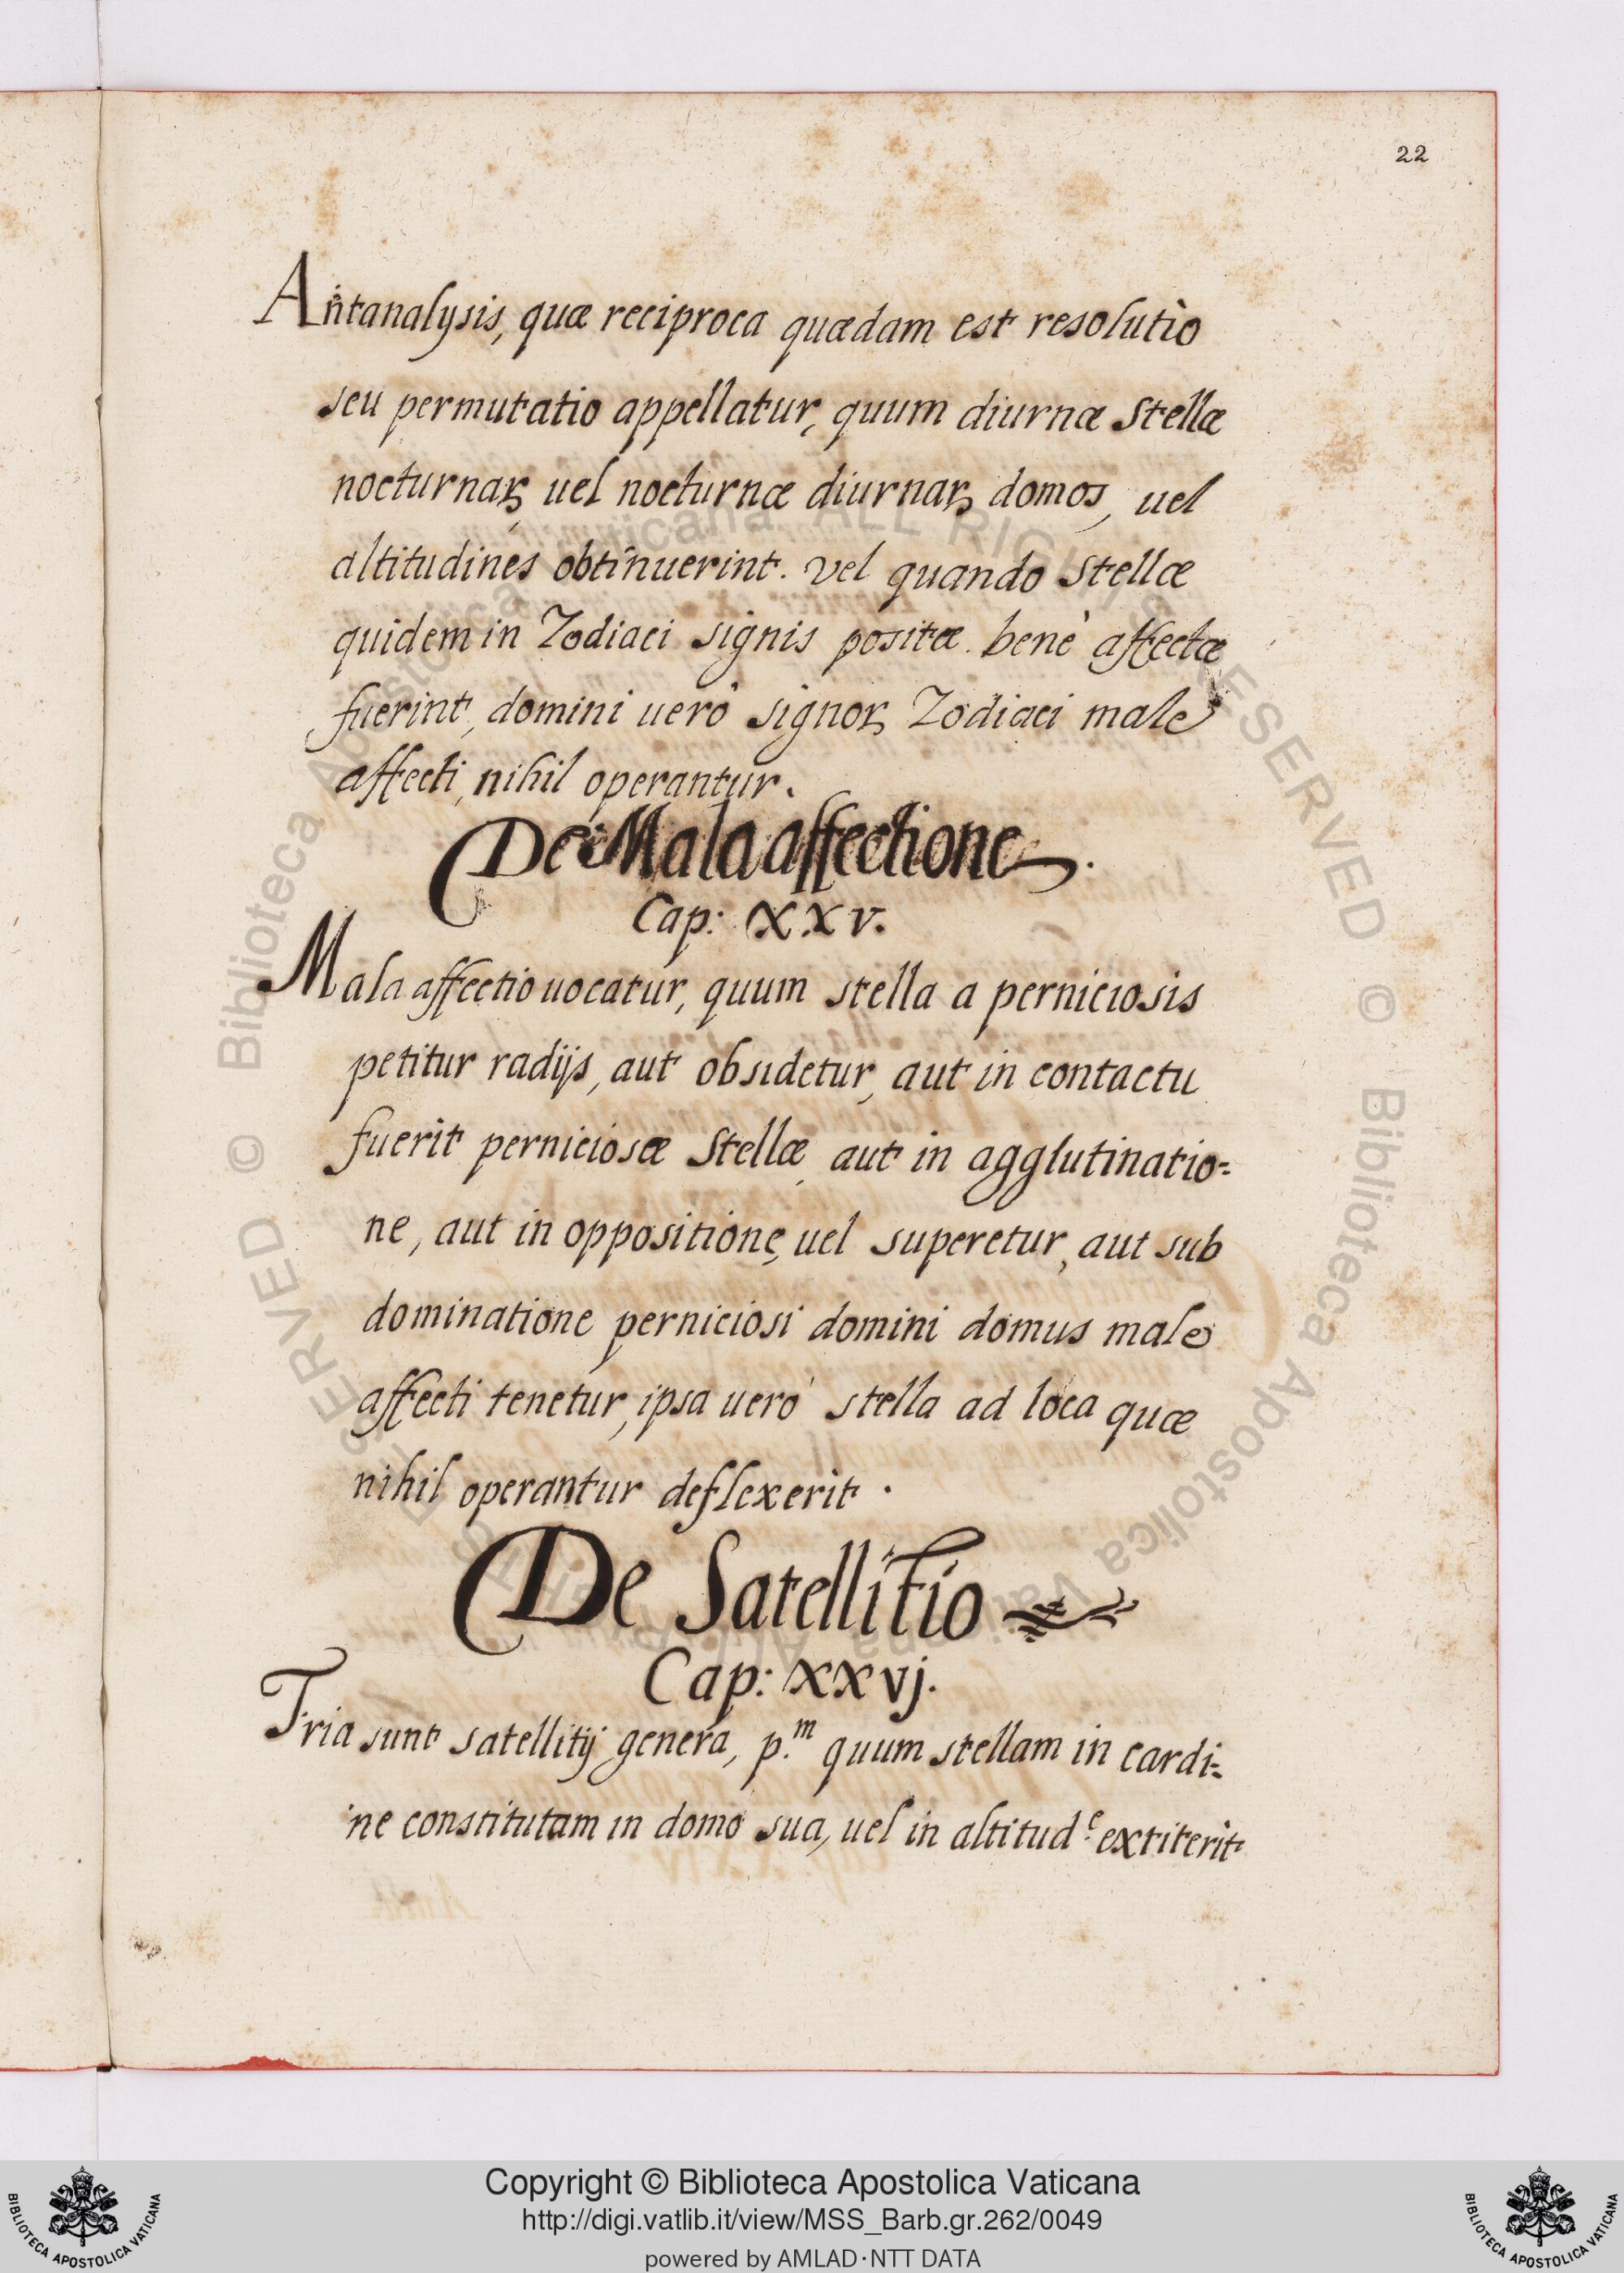 22
Antanalysis, quæ reciproca quædam est resolutio
seu permutatio appellatur, quum diurnæ Stellæ
nocturnaꝝ uel nocturnæ diurnaꝝ domos, uel
altitudines obtinuerint. vel quando Stellæ
quidem in Zodiaci signis positæ. benè affectæ
fuerint, domini uerò signoꝝ Zodiaci male
affecti, nihil operantur.
De Mala affectione.
Cap: XXV.
Mala affectio uocatur, quum stella a perniciosis
petitur radijs, aut obsidetur, aut in contactu
fuerit perniciosæ Stellæ, aut in agglutinatio=
ne, aut in oppositione, uel superetur, aut sub
dominatione perniciosi domini domus male
affecti tenetur, ipsa uerò stella ad loca quæ
nihil operantur deflexerit.
De Satellitio
Cap: XXVj.
Tria sunt satellitij genera, p.ᵐ quum stellam in cardi=
ne constitutam in domo sua, uel in altitud.ᵉ extiterit
Copyright © Biblioteca Apostolica Vaticana
http://digi.vatlib.it/view/MSS_Barb.gr.262/0049
powered by AMLAD·NTT DATA
BIBLIOTECA APOSTOLICA VATICANA
BIBLIOTECA APOSTOLICA VATICANA